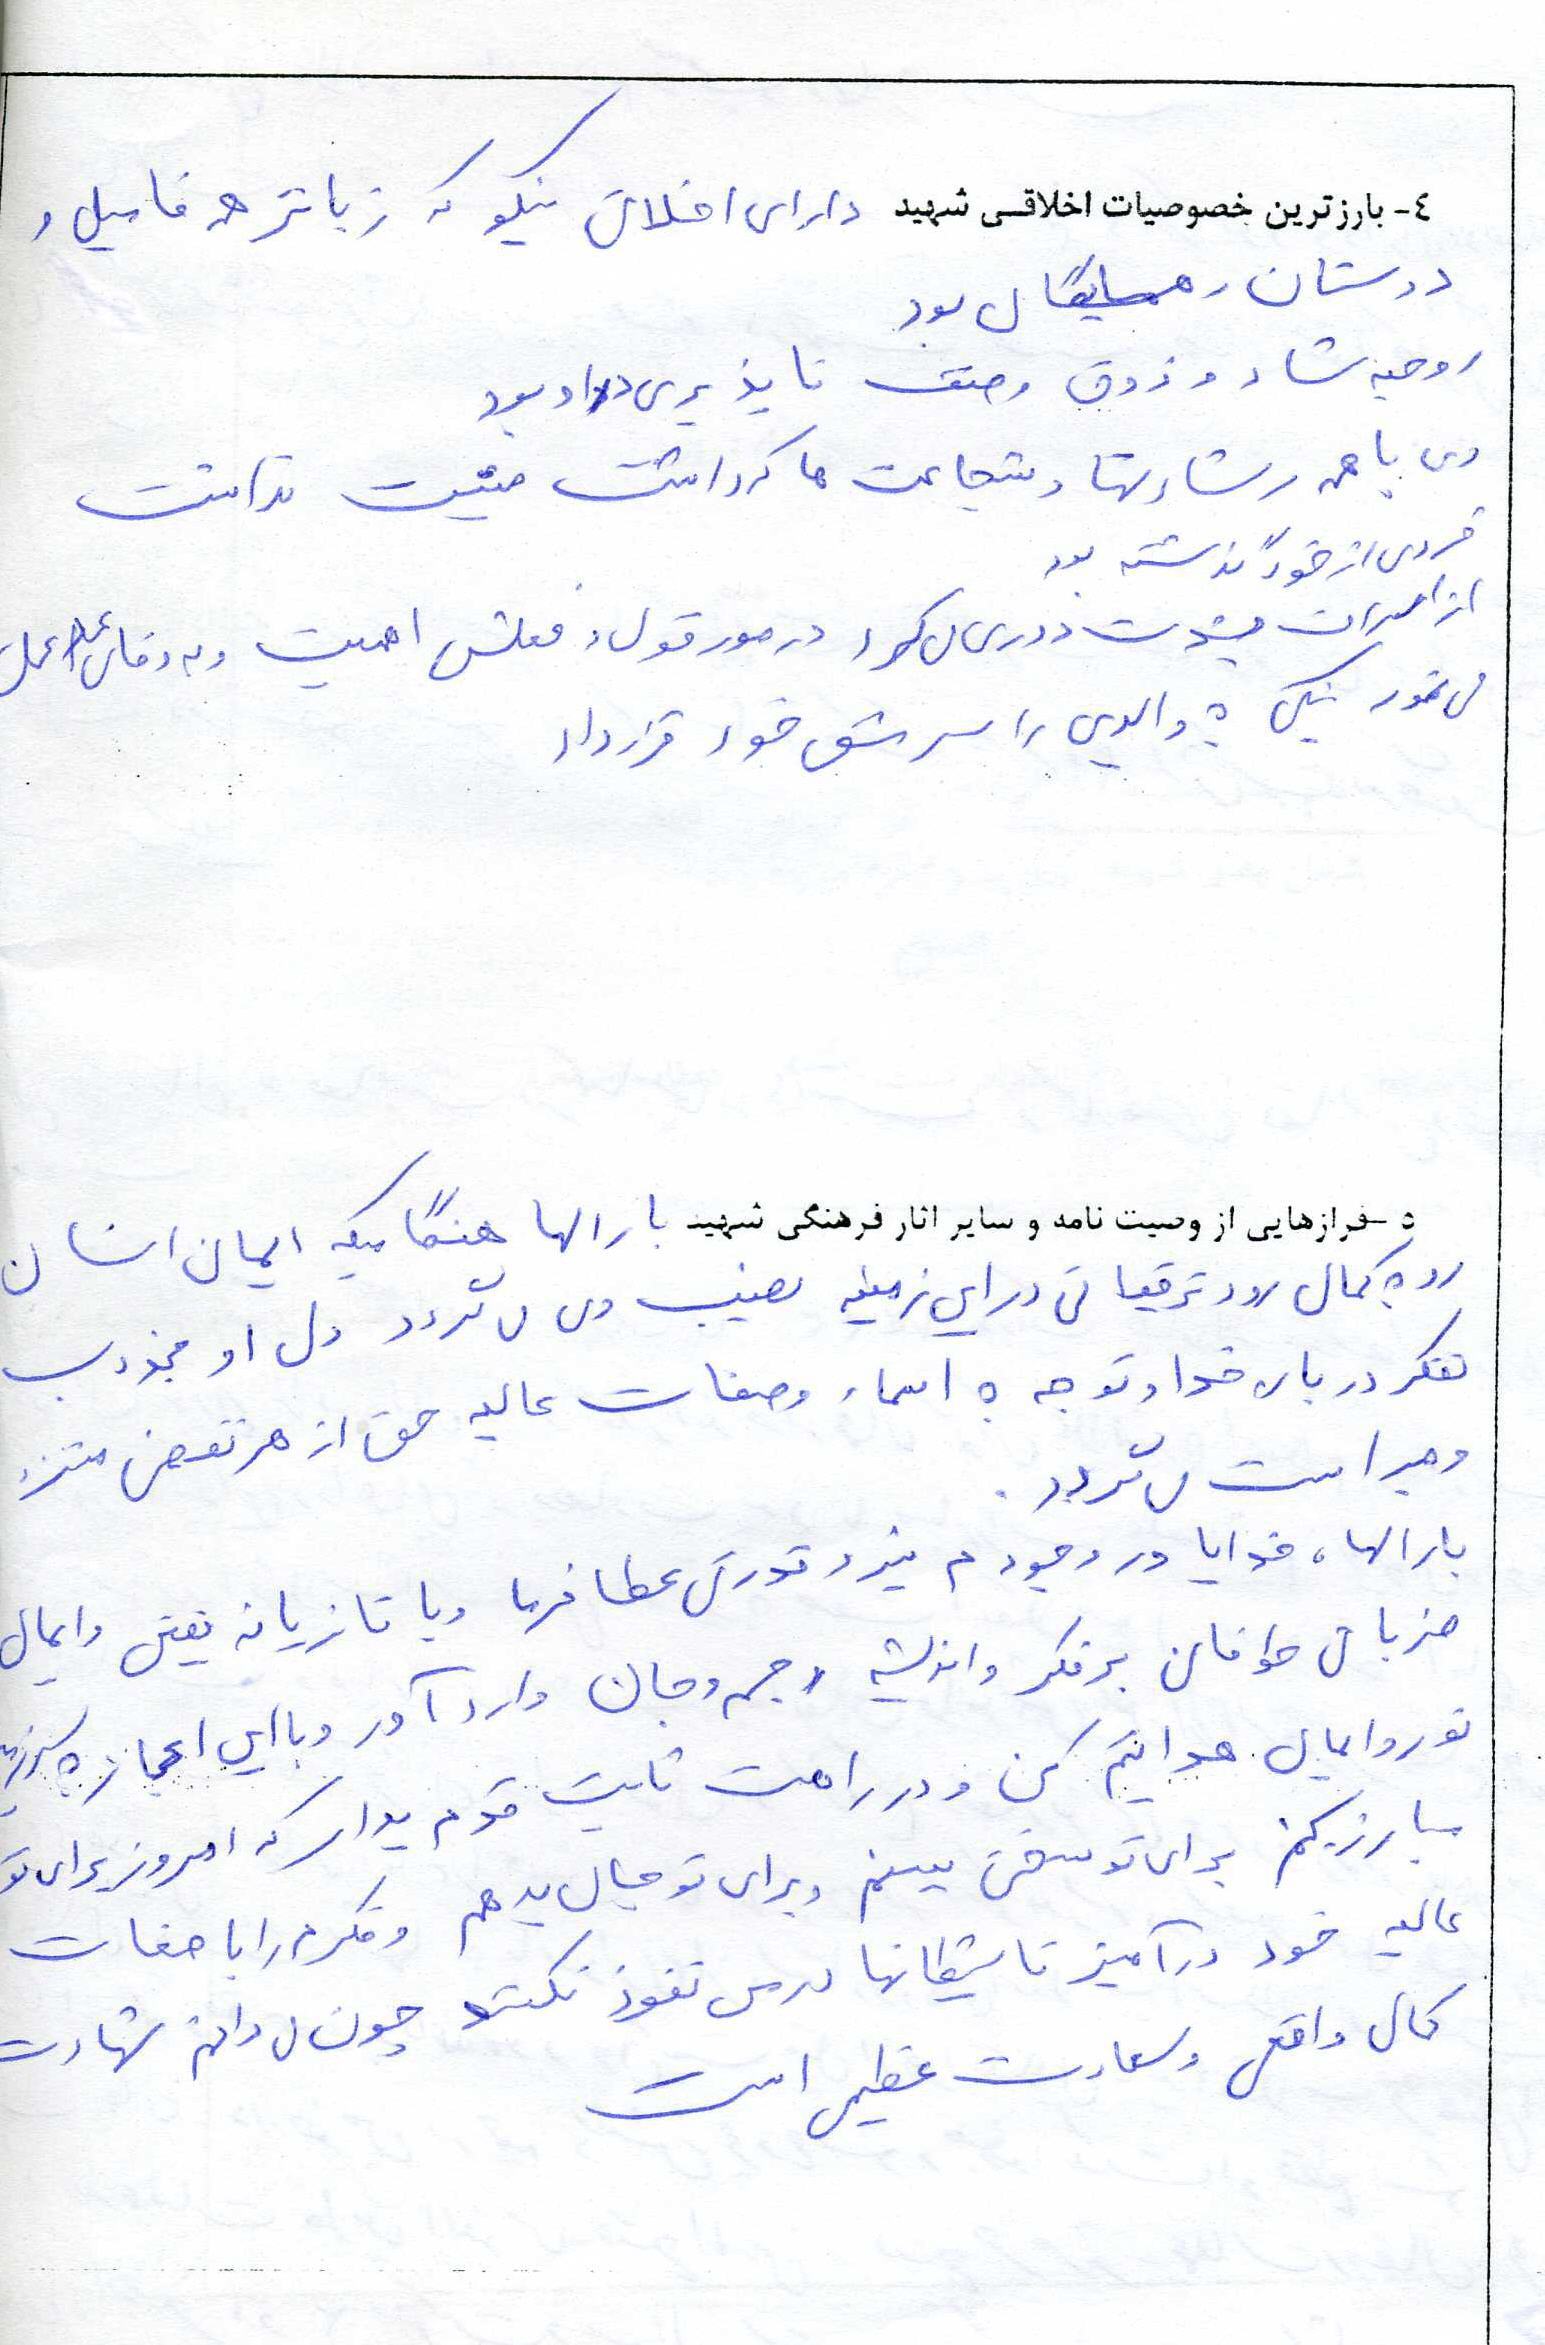 ٤- بارزترین خصوصیات اخلاقی شهید دارای اخلاق نیکو که زبانزد همه فامیل و
دوستان و همسایگان بود
روحیه شاد و ذوق وصف ناپذیری در او بود
وی با همه رشادتها و شجاعت ها که داشت منیت نداشت
فردی از خود گذشته بود
از اسراف بشدت دوری می کرد در مورد قول و فعلش اهمیت و به وفای عمل
می نمود نیکی به والدین را سر مشق خود قرار داد
٥- فرازهایی از وصیت نامه و سایر اثار فرهنگی شهید بار الها هنگامیکه ایمان انسان
رو به کمال رود ترقیاتی در این زمینه نصیب وی می گردد دل او مجذوب
تفکر در یاد خدا و توجه به اسماء و صفات عالیه حق از هر نقص منزه
و مبرا است می گردد.
بار الها، خدایا در وجودم نیرو قدرتی عطا فرما و با تازیانه یقین و ایمان
ضرباتی طوفانی بر فکر و اندیشه و جسم و جان وارد آور و با این اعجاز به سرزمین
نور و ایمان هدایتم کن و در راهت ثابت قدم بدار که امروز برای تو
مبارزه کنم برای تو سخن بگویم و برای تو جان بدهم و فکرم را با صفات
عالیه خود درآمیز تا شیطانها در من نفوذ نکنند چون می دانم شهادت
کمال واقعی و سعادت عظیمی است